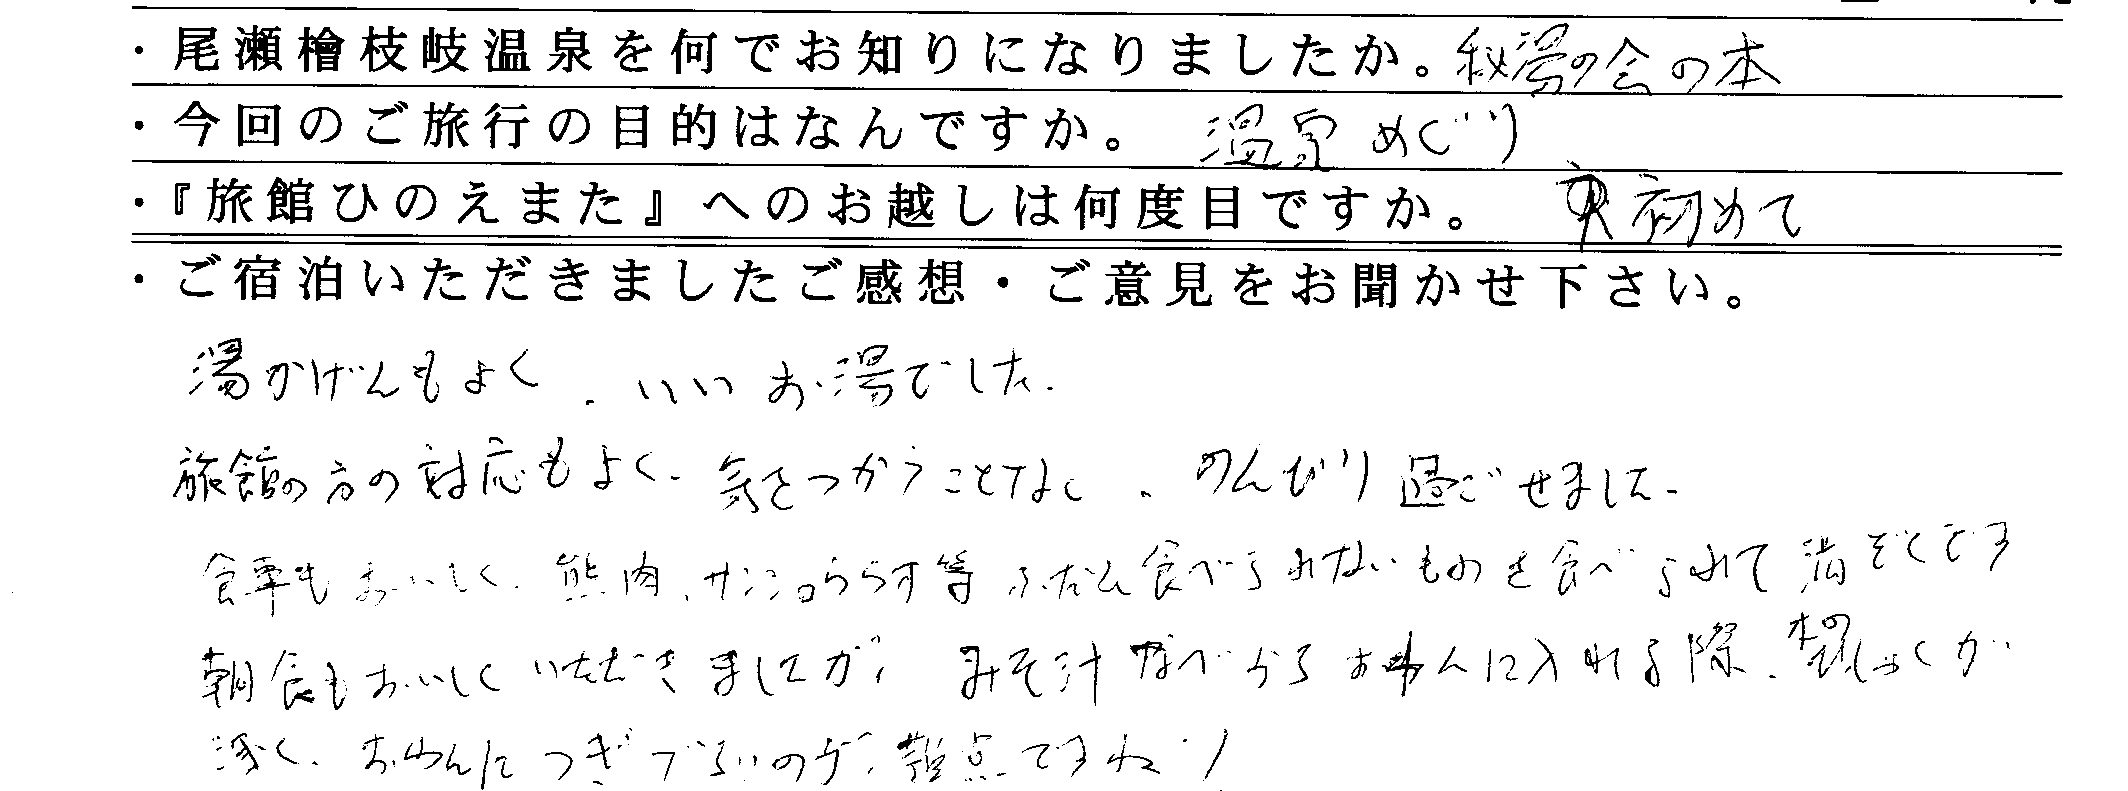 ・尾瀬檜枝岐温泉を何でお知りになりましたか。秘湯の会の本
・今回のご旅行の目的はなんですか。 温泉めぐり
・『旅館ひのえまた』へのお越しは何度目ですか。 初めて
・ご宿泊いただきましたご感想・ご意見をお聞かせ下さい。
湯かげんもよく、いいお湯でした。
旅館の方の対応もよく、気をつかうことなく、のんびり過ごせました。
食事もおいしく、熊肉、サンショウ等ふだん食べられないものを食べられて満ぞくです
朝食もおいしくいただきましたが、みそ汁なべからおわんに入れる際、木のしゃくが
浅く、おわんにつぎづらいのが、難点ですね!